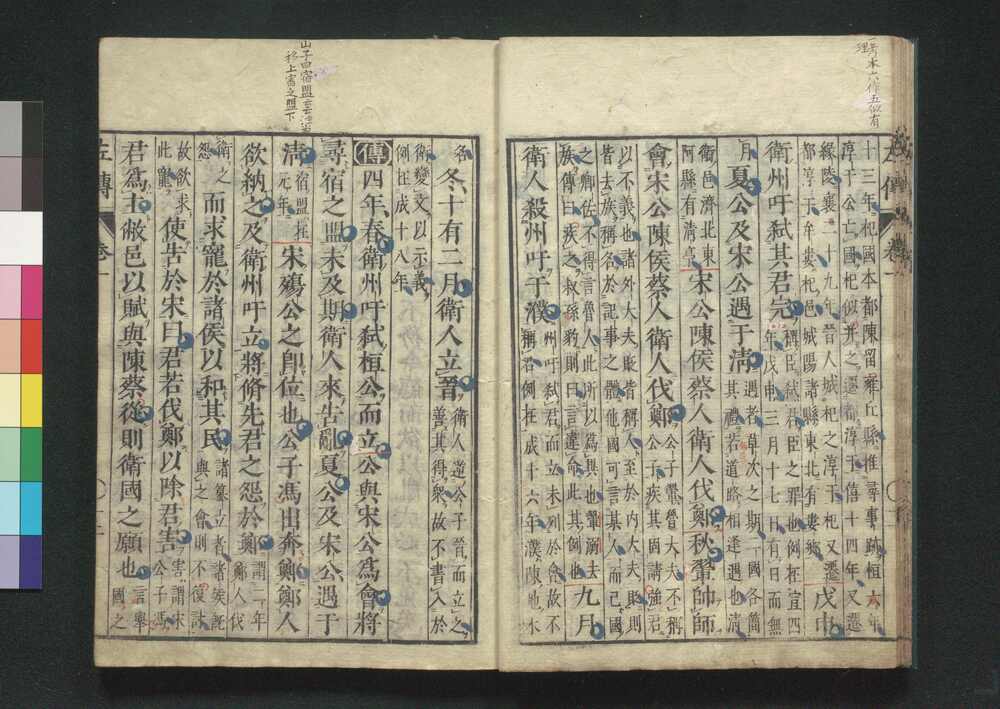 十三年杞國本都陳留雍丘縣推尋事跡桓六年
淳于公亡國杞似并之遷都淳于僖十四年又遷
緣陵襄二十九年晉人城杞之淳于杞又遷
都淳于牟婁杞邑城陽諸縣東北有婁鄉
戊申
衛州吁弒其君完
稱臣弒君臣之罪也例在宣四
年戊申三月十七日有日而無
月
夏公及宋公遇于清
遇者草次之期二國各簡
其禮若道路相逢遇也清
衛邑濟北東
阿縣有清亭
宋公陳侯蔡人衛人伐鄭秋翬帥師
會宋公陳侯蔡人衛人伐鄭
公子翬魯大夫不稱
公子疾其固請強君
以不義也諸外大夫貶皆稱人至於內大夫貶則
皆去族稱名於記事之體他國可言某人而己國
之卿佐不得言魯人此所以為異也翬溺去
族傳曰疾之叔孫豹則曰言違命此其例也
九月
衛人殺州吁于濮
州吁弒君而立未列於會故不
稱君例在成十六年濮陳地水
名
冬十有二月衛人立晉
衛人逆公子晉而立之
善其得眾故不書入於
衛變文以示義
例在成十八年
傳
四年春衛州吁弒桓公而立公與宋公為會將
尋宿之盟未及期衛人來告亂夏公及宋公遇于
清
宿盟在
元年
宋殤公之卽位也公子馮出奔鄭鄭人
欲納之及衛州吁立將脩先君之怨於鄭
謂二年
鄭人伐
衛之
怨
而求寵於諸侯以和其民
諸篡立者諸侯既
與之會則不復討
故欲求
此寵
使告於宋曰君若伐鄭以除君害
害謂宋
公子馮
君爲主敝邑以賦與陳蔡從則衛國之願也
言舉
國之
左傳
卷一
山子曰宿盟云云
移上宿之盟下
一考本六作五似有
理